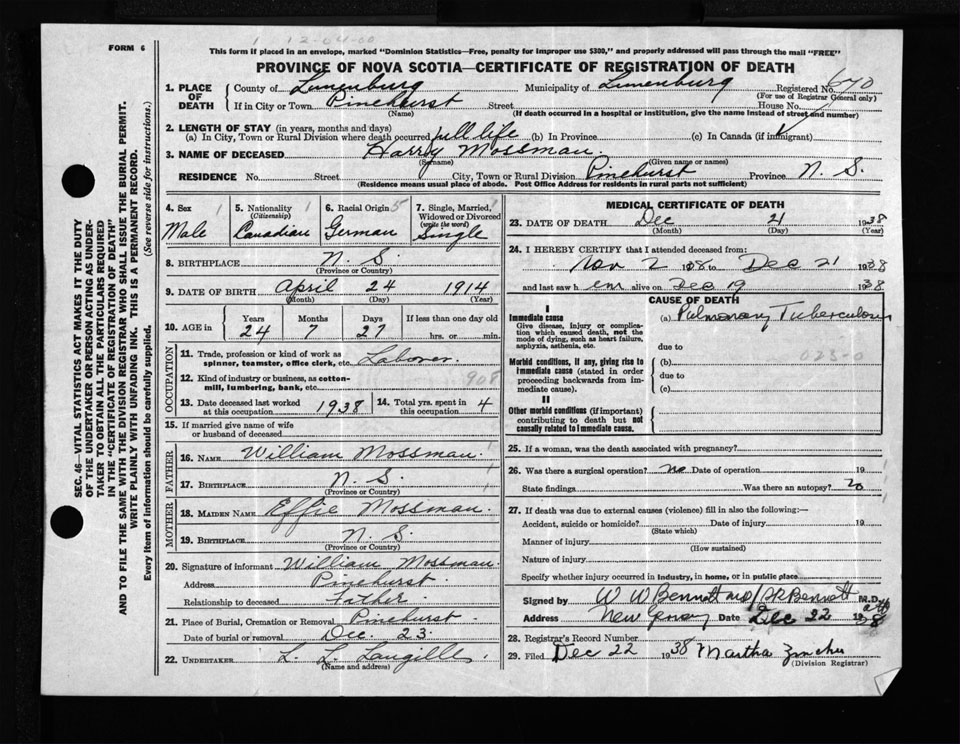 FORM 6
This form if placed in an envelope, marked "Dominion Statistics—Free, penalty for improper use $300," and properly addressed will pass through the mail "FREE"
PROVINCE OF NOVA SCOTIA—CERTIFICATE OF REGISTRATION OF DEATH
1. PLACE OF DEATH
County of Lunenburg Municipality of Lunenburg Registered No. 670
(For use of Registrar General only)
If in City or Town Pinehurst Street House No.
(Name) (If death occurred in a hospital or institution, give the name instead of street and number)
2. LENGTH OF STAY (in years, months and days)
(a) In City, Town or Rural Division where death occurred full life (b) In Province (c) In Canada (if immigrant)
3. NAME OF DECEASED Harry Mossman.
(Surname) (Given name or names)
RESIDENCE No. Street City, Town or Rural Division Pinehurst Province N. S.
(Residence means usual place of abode. Post Office Address for residents in rural parts not sufficient)
4. Sex Male
5. Nationality (Citizenship) Canadian
6. Racial Origin German
7. Single, Married, Widowed or Divorced (write the word) Single
8. BIRTHPLACE N. S.
(Province or Country)
9. DATE OF BIRTH April 24 1914
(Month) (Day) (Year)
10. AGE in Years Months Days If less than one day old
24 7 27 hrs. or min.
OCCUPATION
11. Trade, profession or kind of work as spinner, teamster, office clerk, etc. Laborer.
12. Kind of industry or business, as cotton-mill, lumbering, bank, etc. 908
13. Date deceased last worked at this occupation 1938
14. Total yrs. spent in this occupation 4
15. If married give name of wife or husband of deceased
FATHER
16. NAME William Mossman.
17. BIRTHPLACE N. S.
(Province or Country)
MOTHER
18. MAIDEN NAME Effie Mossman.
19. BIRTHPLACE N. S.
(Province or Country)
20. Signature of informant William Mossman.
Address Pinehurst.
Relationship to deceased Father.
21. Place of Burial, Cremation or Removal Pinehurst.
Date of burial or removal Dec. 23.
22. UNDERTAKER L. L. Langille
(Name and address)
MEDICAL CERTIFICATE OF DEATH
23. DATE OF DEATH Dec 21 1938
(Month) (Day) (Year)
24. I HEREBY CERTIFY that I attended deceased from:
Nov 2 1938 to Dec 21 1938
and last saw h em alive on Dec 19 1938
CAUSE OF DEATH
I
Immediate cause
Give disease, injury or complication which caused death, not the mode of dying, such as heart failure, asphyxia, asthenia, etc.
(a) Pulmonary Tuberculosis
due to
Morbid conditions, if any, giving rise to immediate cause (stated in order proceeding backwards from immediate cause).
(b) 023-0
due to
(c)
II
Other morbid conditions (if important) contributing to death but not causally related to immediate cause.
25. If a woman, was the death associated with pregnancy?
26. Was there a surgical operation? no Date of operation 19
State findings Was there an autopsy? no
27. If death was due to external causes (violence) fill in also the following:—
Accident, suicide or homicide? Date of injury 19
(State which)
Manner of injury
(How sustained)
Nature of injury
Specify whether injury occurred in industry, in home, or in public place
Signed by W W Bennett MD Bennett M.D.
Address New Date Dec 22 1938
28. Registrar's Record Number
29. Filed Dec 22 1938 Martha
(Division Registrar)
SEC. 46—VITAL STATISTICS ACT MAKES IT THE DUTY
OF THE UNDERTAKER OR PERSON ACTING AS UNDERTAKER
TO OBTAIN ALL THE PARTICULARS REQUIRED
IN THE "CERTIFICATE OF REGISTRATION OF DEATH"
AND TO FILE THE SAME WITH THE DIVISION REGISTRAR WHO SHALL ISSUE THE BURIAL PERMIT.
WRITE PLAINLY WITH UNFADING INK. THIS IS A PERMANENT RECORD.
Every item of information should be carefully supplied. (See reverse side for instructions.)